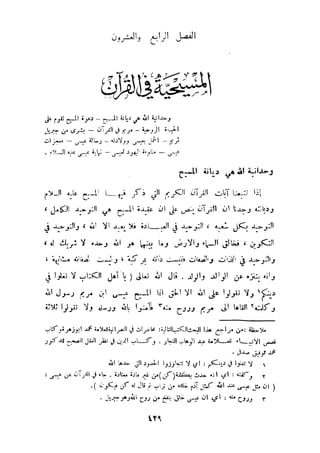 الفصل الرابع والعشرون
المسيحية في القرآن
وحدانية الله هي ديانة المسيح - دعوة المسيح تقوم على
الحياة الروحية - مريم في القرآن - بشرى من جبريل
لمريم - الحمل بعيسى وولادته - رسالة عيسى - معجزات
عيسى - مقاومة اليهود لعيسى - نهاية عيسى عليه السلام .
وحدانية الله هي ديانة المسيح
إذا تتبعنا آيات القرآن الكريم التي ذكر فيها المسيح عليه السلام
وديانته وجدنا أن القرآن ينص على أن عقيدة المسيح هي التوحيد الكامل ،
التوحيد بكل شعبه ، التوحيد في العبادة فلا يعبد إلا الله ، والتوحيد في
التكوين ، فخالق السماء والأرض وما بينهما هو الله وحده لا شريك له ،
والتوحيد في الذات والصفات فليست ذاته بمركبة ، وليست مشابهة
وأنه ينزه عن الوالد والولد . قال الله تعالى ( يا أهل الكتاب لا تغلوا في
دينكم١ ولا تقولوا على الله إلا الحق إنما المسيح عيسى ابن مريم رسول الله
وكلمته٢ ألقاها إلى مريم وروح منه٣ فآمنوا بالله ورسله ولا تقولوا ثلاثة
ملاحظة : من مراجع هذا البحث الكتب التالية : محاضرات في النصرانية للعلامة محمد أبو زهرة وكتاب
قصص الأنبياء للعلامة عبد الوهاب النجار . وكتاب الدين في نظر العقل الصحيح للدكتور
محمد توفيق صدقي .
١ لا تغلوا في دينكم : أي لا تتجاوزوا الحدود التي حدها الله
٢ وكلمته : أي أنه حدث بكلمة (كن) من غير مادة معتادة . جاء في القرآن عن عيسى :
( إن مثل عيسى عند الله كمثل آدم خلقه من تراب ثم قال له كن فيكون ) .
٣ وروح منه : أي أن عيسى خلق بنفخ من روح الله وهو جبريل .
٤٢٩